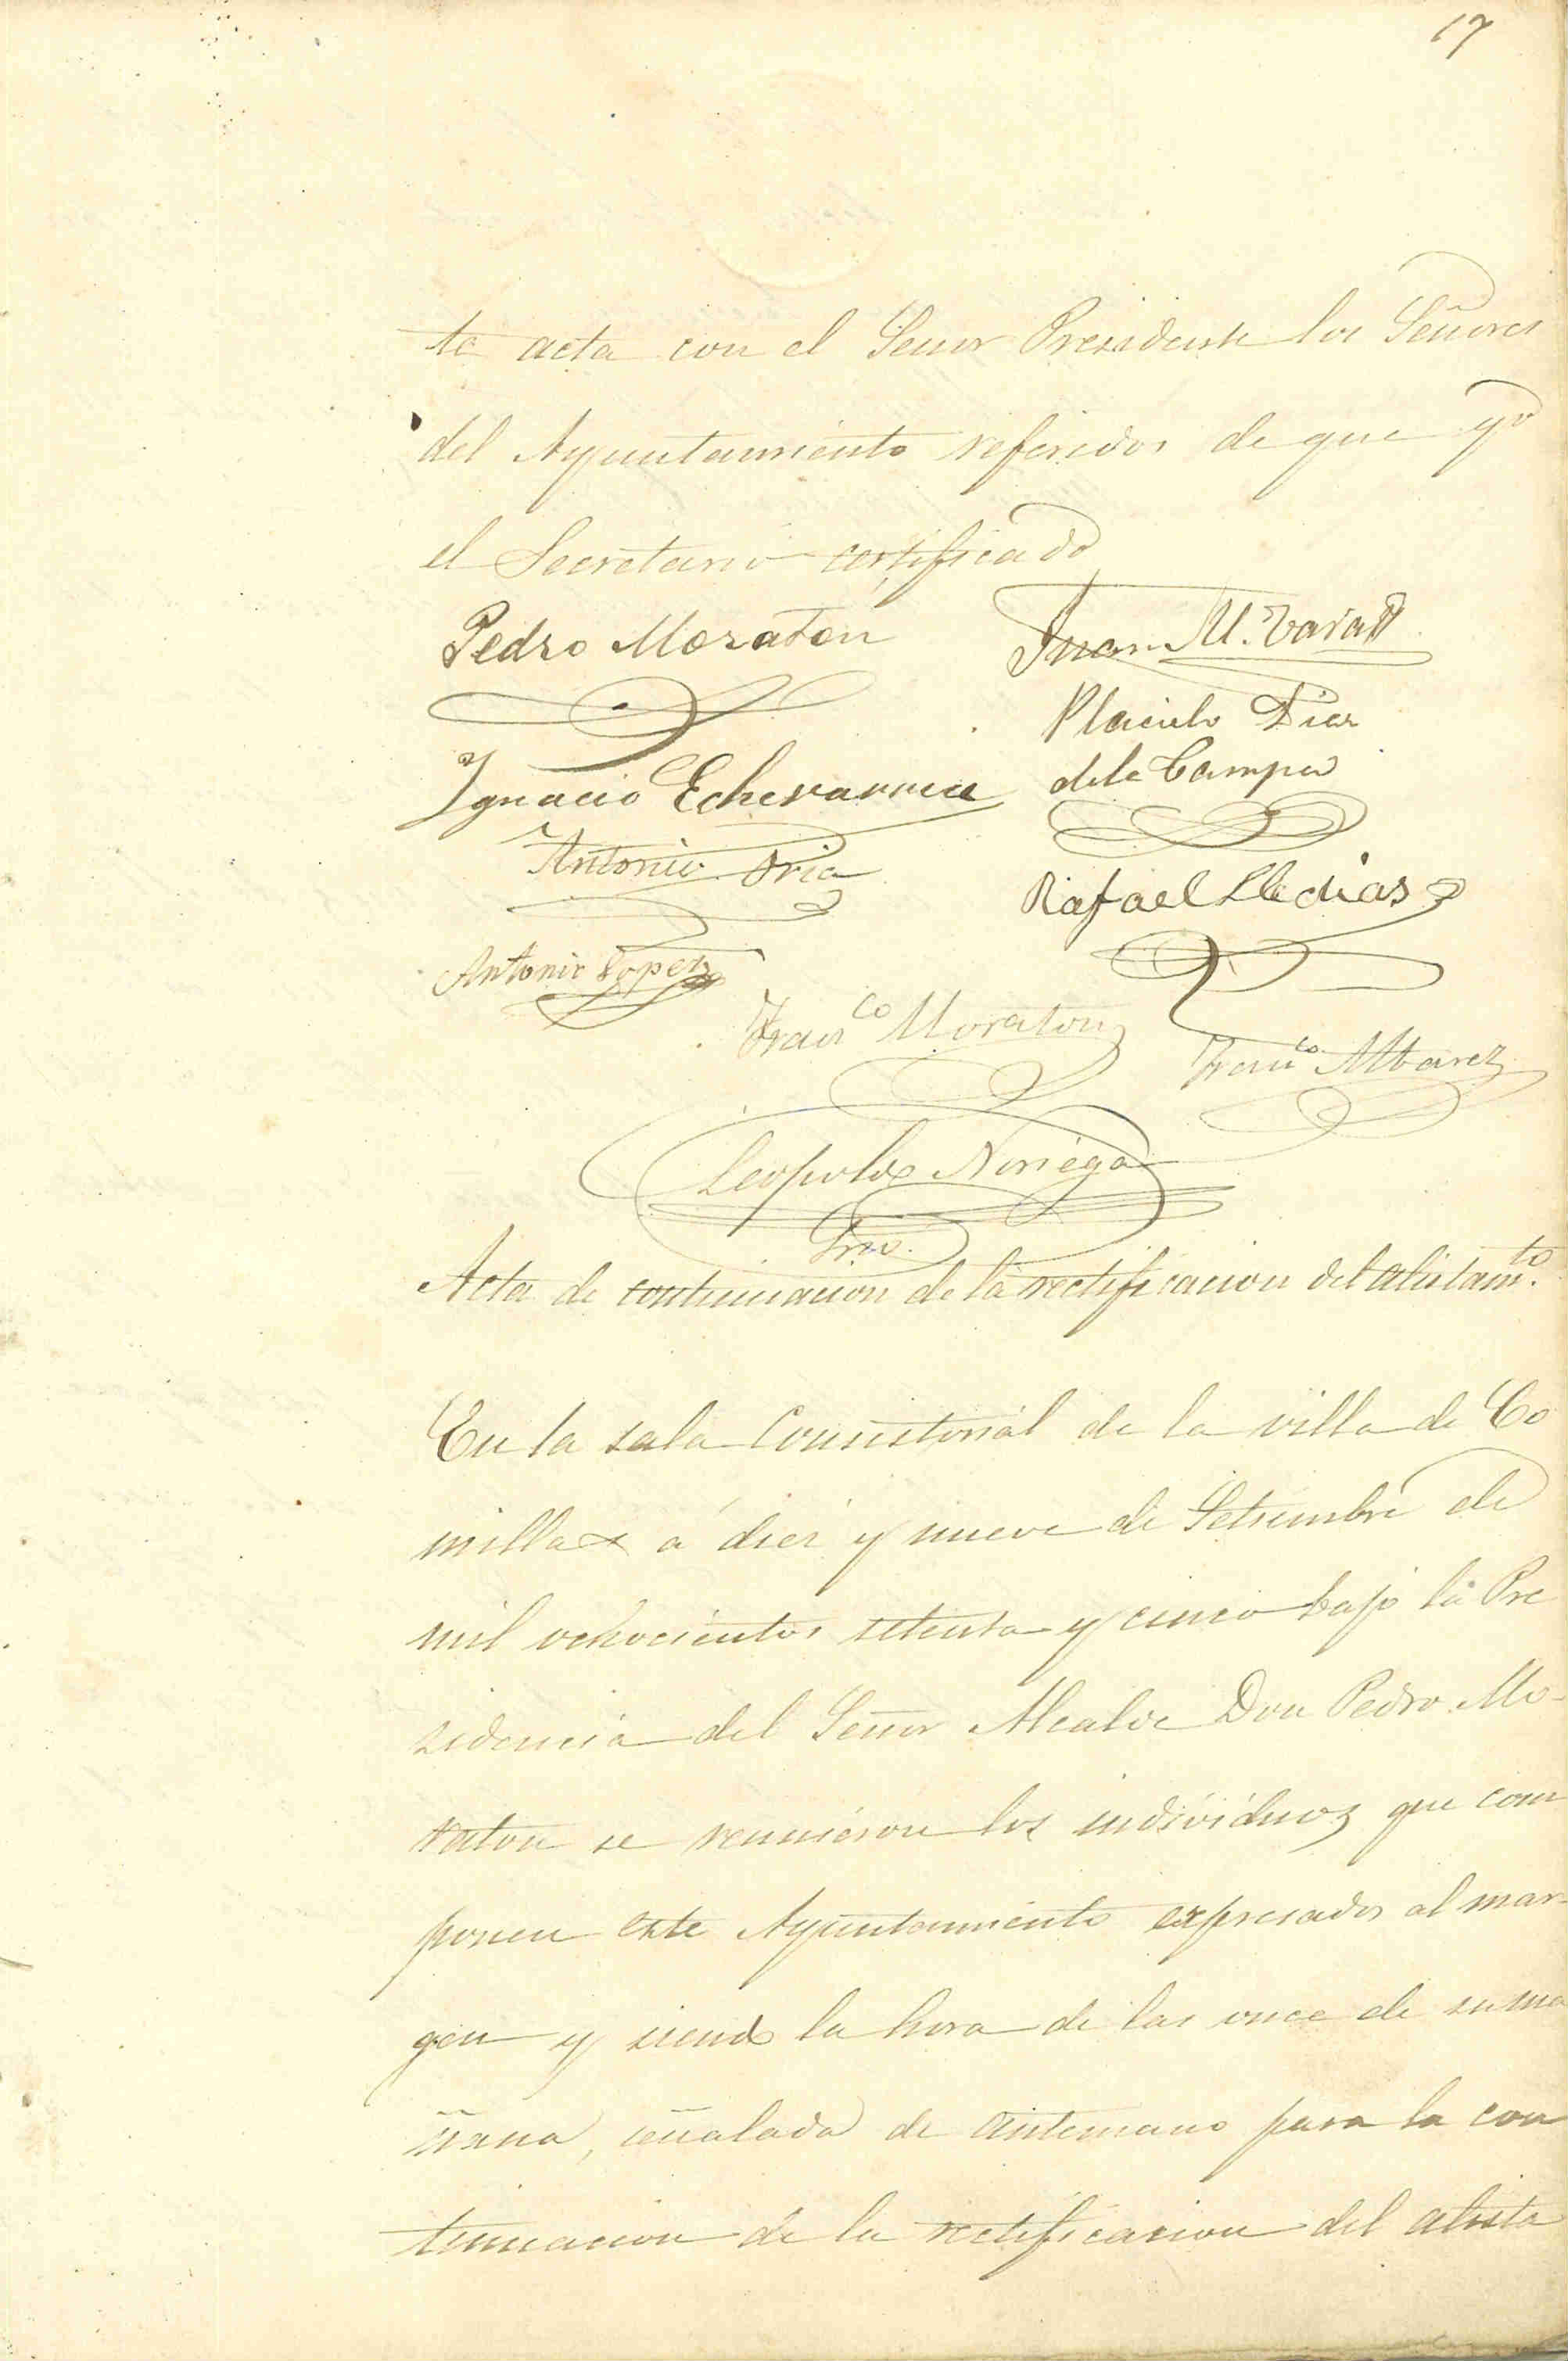 17
te acta con el Señor Presidente los Señores
del Ayuntamiento referidos de que yo
el Secretario certificado
Pedro Moraton
Juan M.
Placido Diaz
de la Campa
Ignacio Echevarria
Antonio Oria
Rafael Lledias
Antonio Lopez
Franco Moraton
Franco Albarez
Leopoldo Noriega
Srio.
Acta de continuacion de la rectificacion del alistamto.
En la sala Consistorial de la villa de Co
millas á diez y nueve de Setiembre de
mil ochocientos setenta y cinco bajo la Pre
sidencia del Señor Alcalde Don Pedro Mo-
raton se reunieron los individuos que com
ponen este Ayuntamiento expresados al mar-
gen y siendo la hora de las once de su ma
ñana, señalada de antemano para la con
tinuacion de la rectificacion del alista